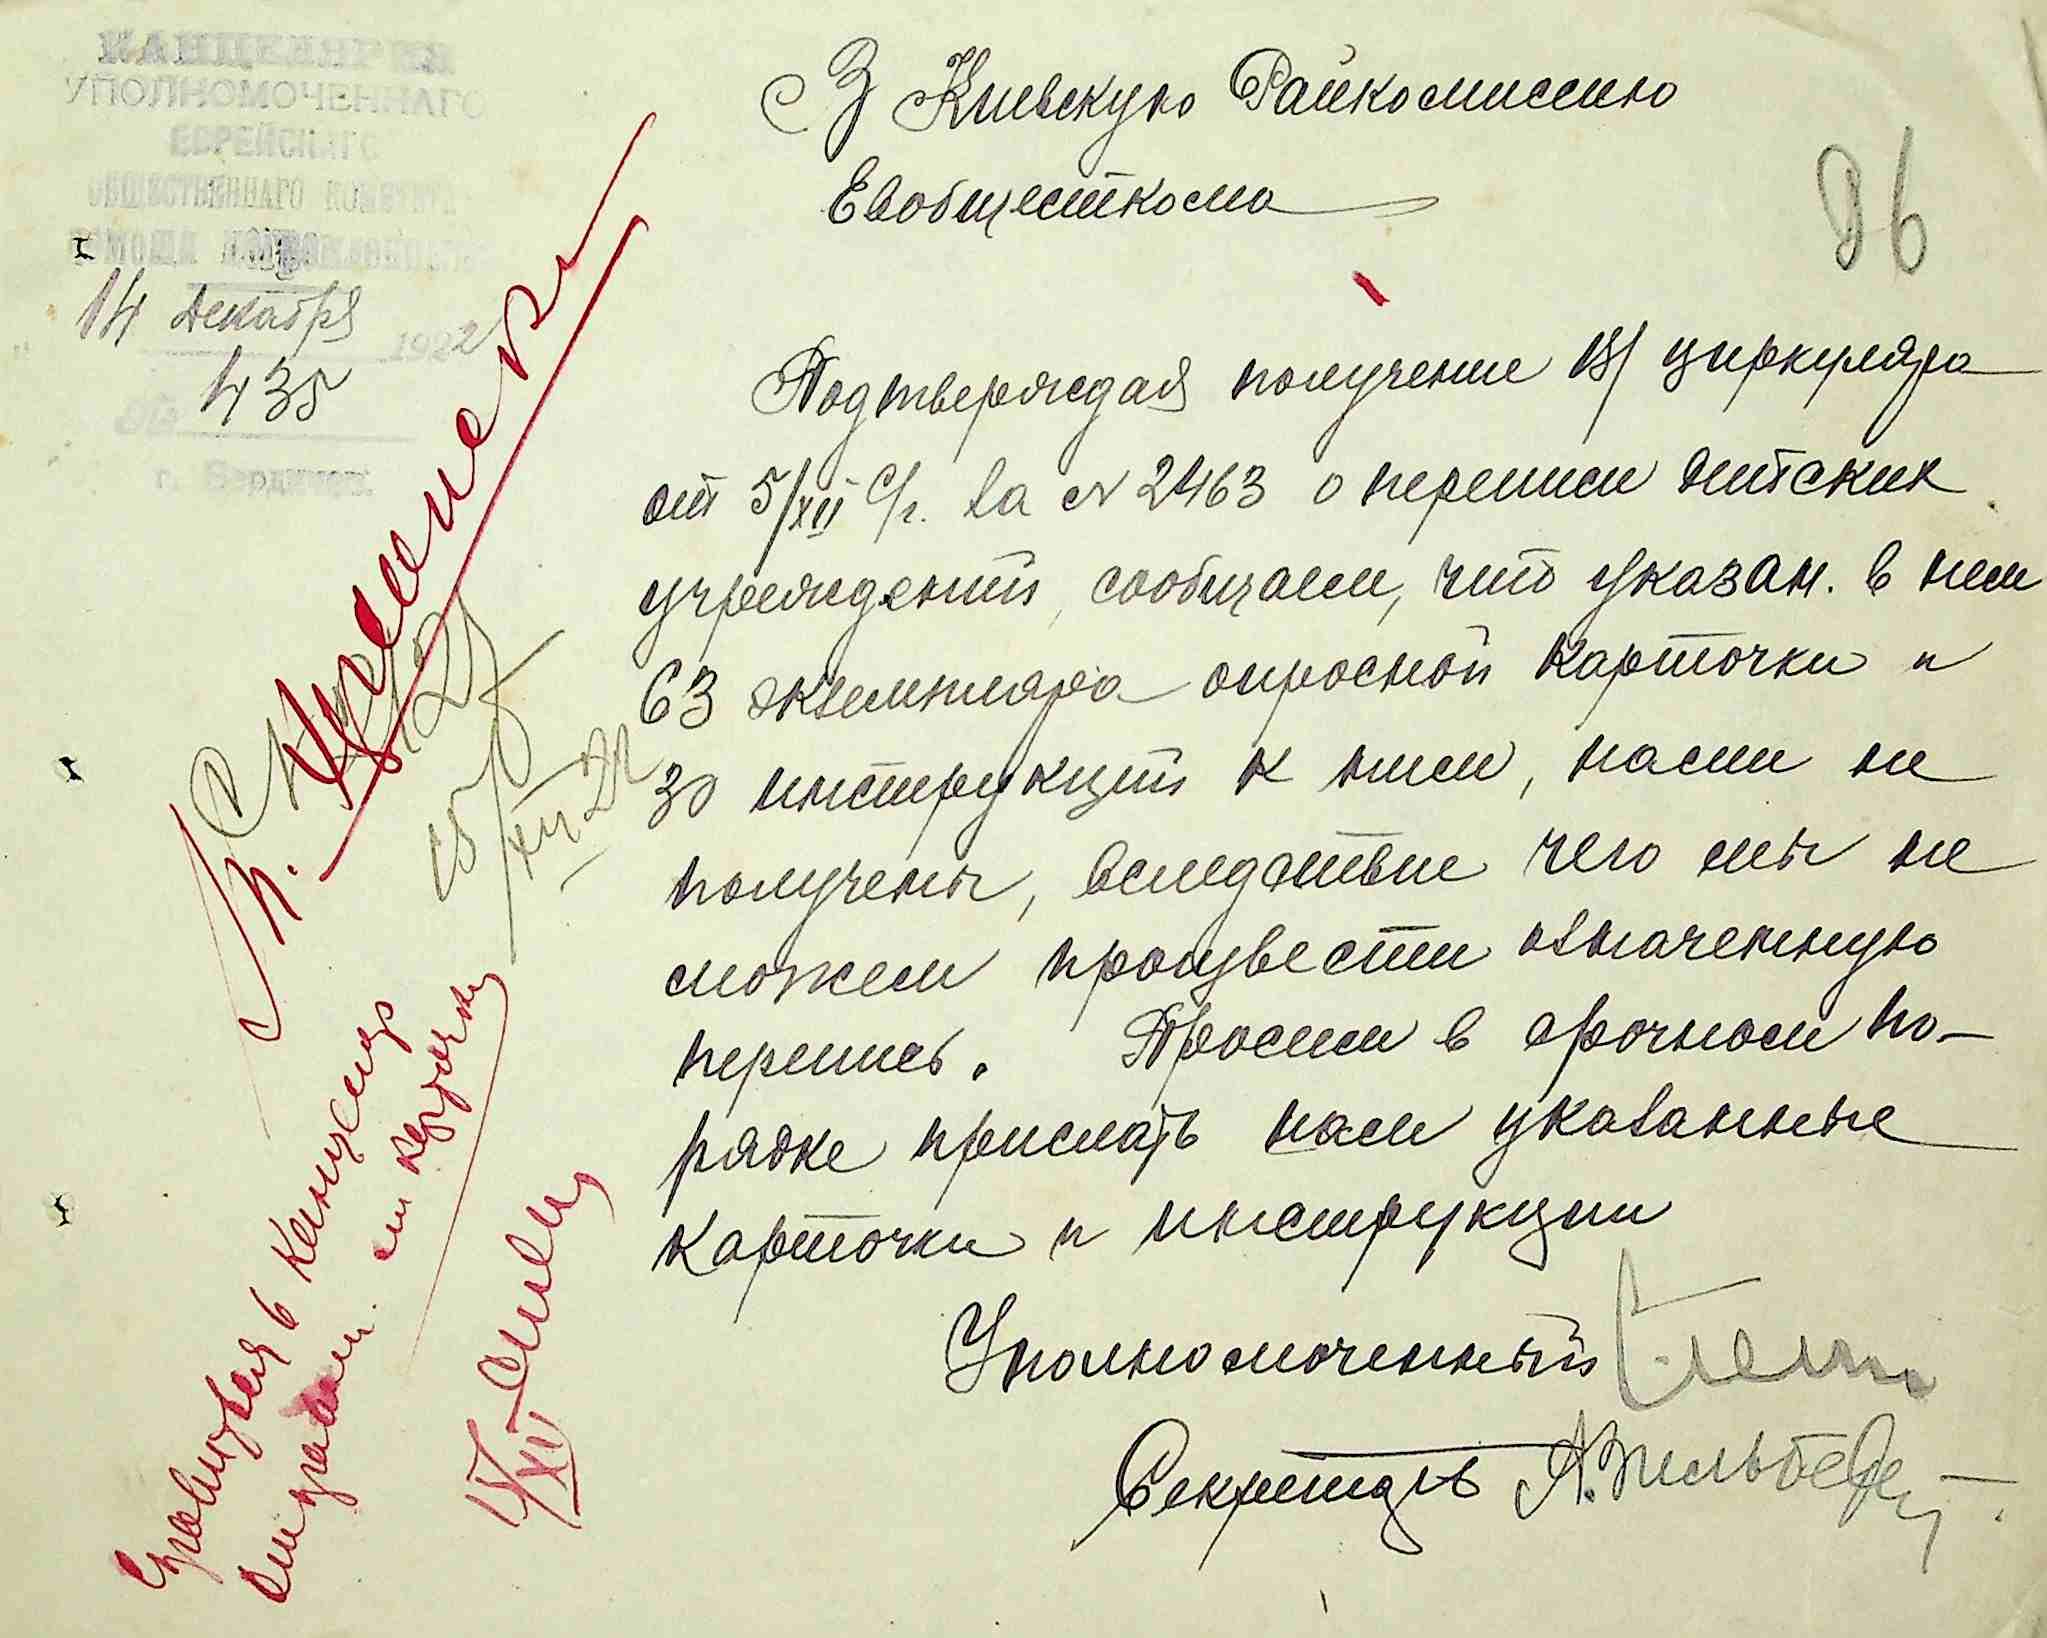 КАНЦЕЛЯРИЯ
УПОЛНОМОЧЕННАГО
ЕВРЕЙСКАГО
ОБЩЕСТВЕННАГО КОМИТЕТА
14 Декабря 1922
№ 435
г. Бердичев.
В Киевскую Райкомиссию
Евобщесткома
Подтверждая получение В/ циркуляра
от 5/XII с/г. за № 2463 о переписи детских
учреждений, сообщаем, что указан. в нем
63 экземпляра опросной карточки и
30 инструкций к ним, нами не
получены, вследствие чего мы не
можем произвести означенную
перепись. Просим в срочном по-
рядке прислать нам указанные
карточки и инструкции
Уполномоченный
Секретарь А. Зильбер
15/XII 22
Справиться в Канцеляр
ли карточки
15/XII